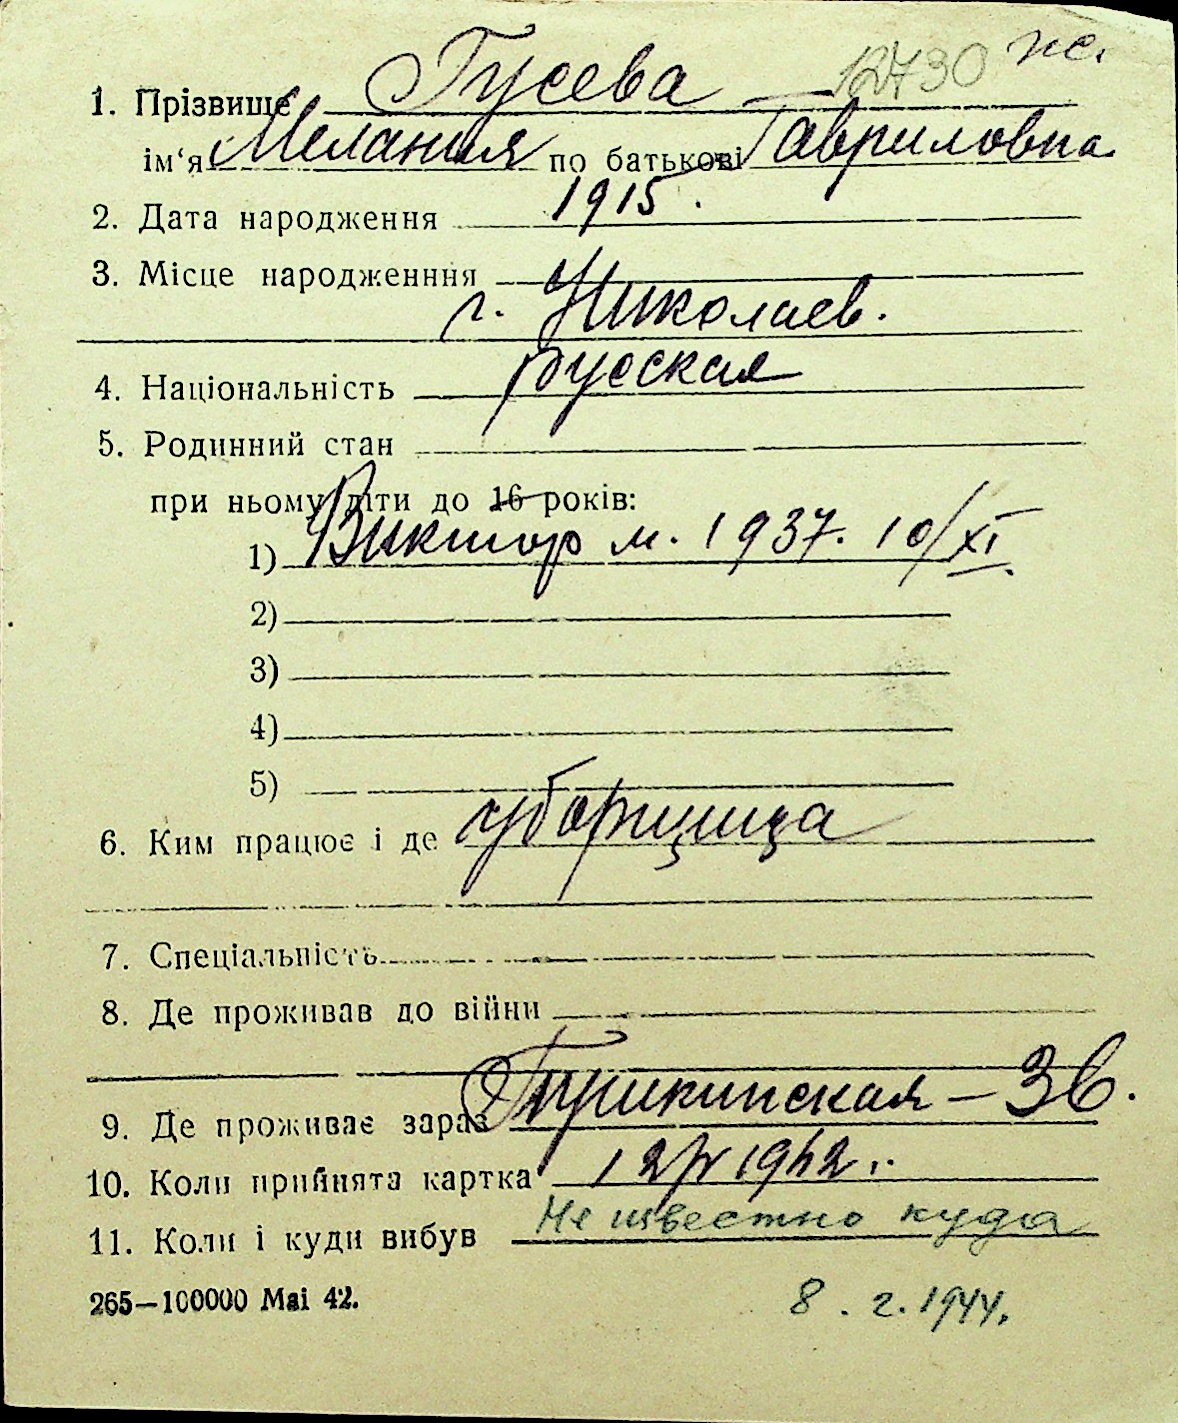 12730 ж.
1. Прізвище Гусева
ім'я Мелания по батькові Гавриловна
2. Дата народження 1915.
3. Місце народженння
г. Николаев.
4. Національність русская
5. Родинний стан
при ньому діти до 16 років:
1) Виктор м. 1937. 10/XI
2)
3)
4)
5)
6. Ким працює і де уборщица
7. Спеціальність
8. Де проживав до війни
9. Де проживає зараз 36.
10. Коли прийнята картка 1942 г.
11. Коли і куди вибув Не известно куда
265—100000 Mai 42. 8. 2. 1944.